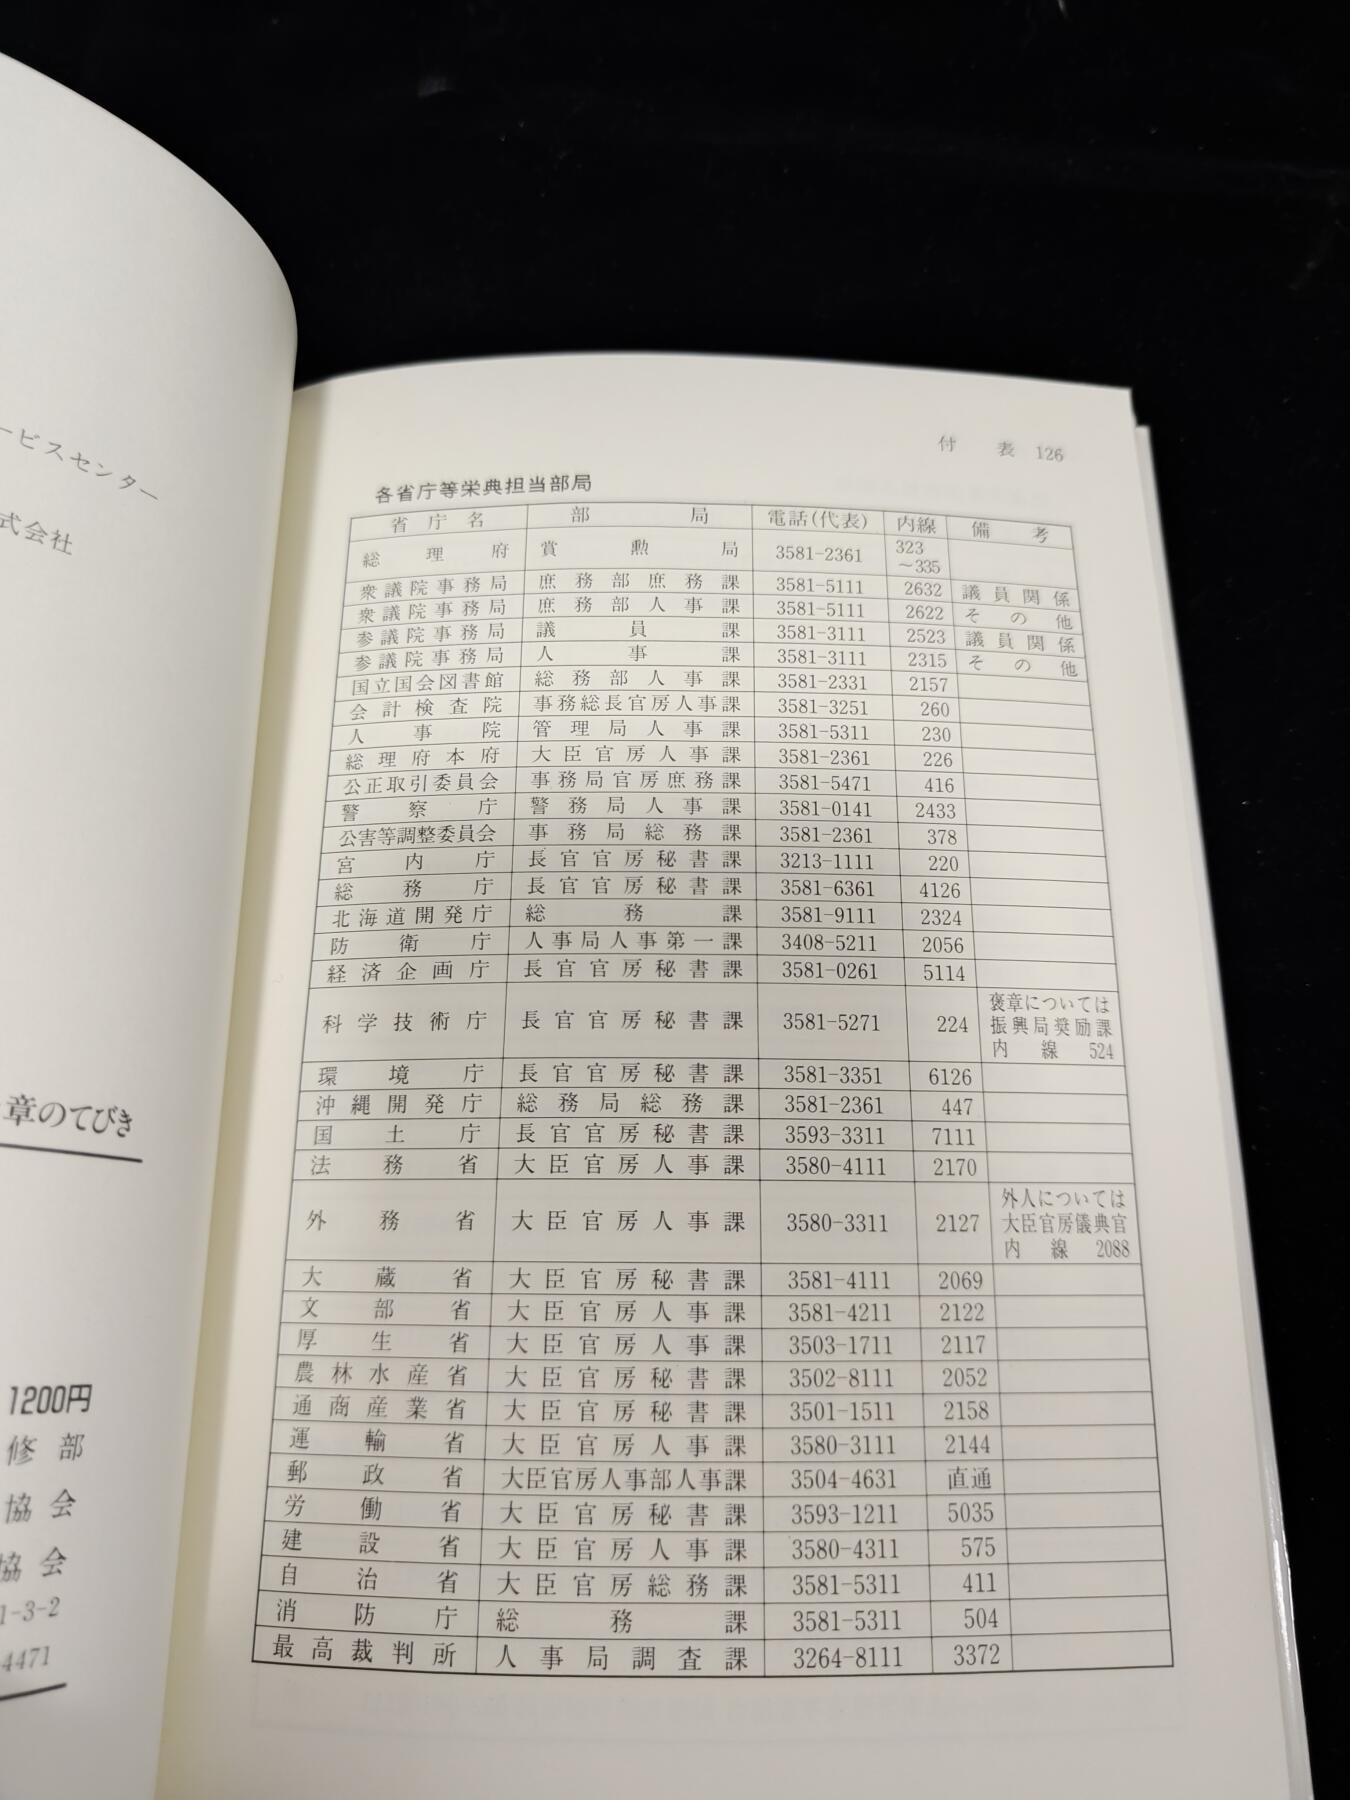 ービスセンター
式会社
章のてびき
1200円
修部
協会
協会
1-3-2
4471
付表 126
各省庁等栄典担当部局
省庁名 部局 電話(代表) 内線 備考
総理府 賞勲局 3581-2361 323～335
衆議院事務局 庶務部庶務課 3581-5111 2632 議員関係
衆議院事務局 庶務部人事課 3581-5111 2622 その他
参議院事務局 議員課 3581-3111 2523 議員関係
参議院事務局 人事課 3581-3111 2315 その他
国立国会図書館 総務部人事課 3581-2331 2157
会計検査院 事務総長官房人事課 3581-3251 260
人事院 管理局人事課 3581-5311 230
総理府本府 大臣官房人事課 3581-2361 226
公正取引委員会 事務局官房庶務課 3581-5471 416
警察庁 警務局人事課 3581-0141 2433
公害等調整委員会 事務局総務課 3581-2361 378
宮内庁 長官官房秘書課 3213-1111 220
総務庁 長官官房秘書課 3581-6361 4126
北海道開発庁 総務課 3581-9111 2324
防衛庁 人事局人事第一課 3408-5211 2056
経済企画庁 長官官房秘書課 3581-0261 5114
科学技術庁 長官官房秘書課 3581-5271 224 褒章については振興局奨励課内線 524
環境庁 長官官房秘書課 3581-3351 6126
沖縄開発庁 総務局総務課 3581-2361 447
国土庁 長官官房秘書課 3593-3311 7111
法務省 大臣官房人事課 3580-4111 2170
外務省 大臣官房人事課 3580-3311 2127 外人については大臣官房儀典官内線 2088
大蔵省 大臣官房秘書課 3581-4111 2069
文部省 大臣官房人事課 3581-4211 2122
厚生省 大臣官房人事課 3503-1711 2117
農林水産省 大臣官房秘書課 3502-8111 2052
通商産業省 大臣官房秘書課 3501-1511 2158
運輸省 大臣官房人事課 3580-3111 2144
郵政省 大臣官房人事部人事課 3504-4631 直通
労働省 大臣官房秘書課 3593-1211 5035
建設省 大臣官房人事課 3580-4311 575
自治省 大臣官房総務課 3581-5311 411
消防庁 総務課 3581-5311 504
最高裁判所 人事局調査課 3264-8111 3372